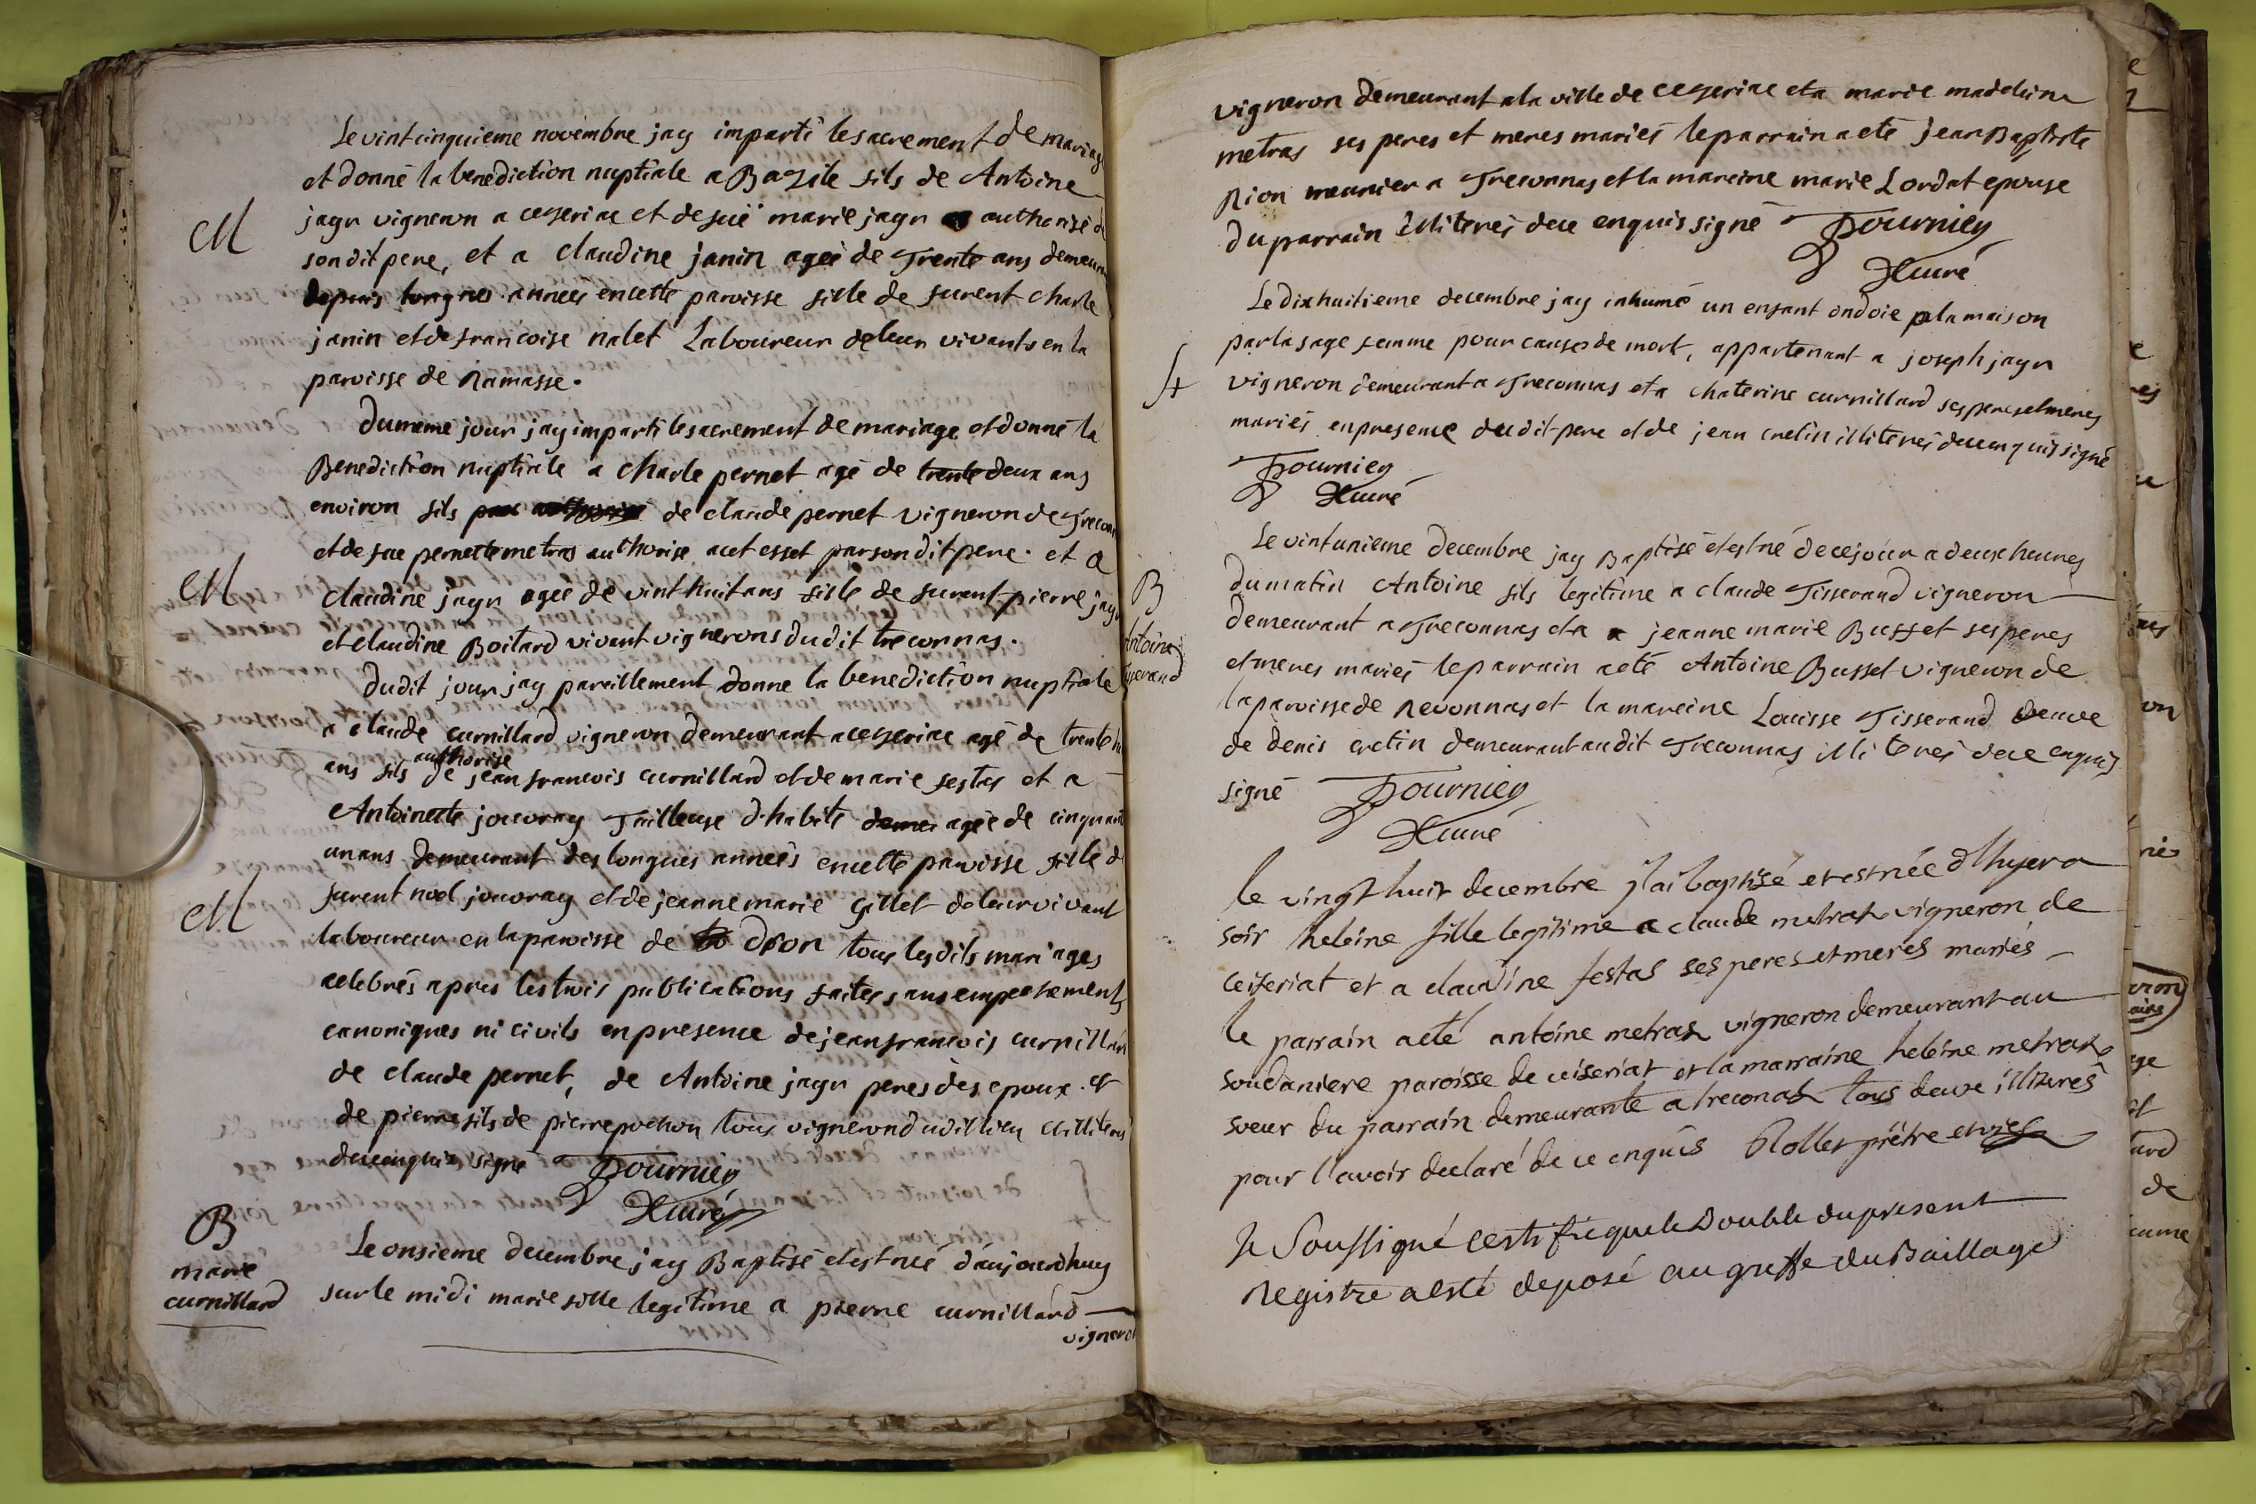 Le vintcinquieme novembre jay imparti le sacrement de mariag
et donné la benediction nuptiale a Bazile fils de Antoine
M
jayr vigneron a ceyseriac et de fuë marie jayr authorisé d
son dit pere, et a claudine janin ageé de Trente ans demeur
depuis longues annees en cette paroisse fille de furent charle
janin et de francoise nalet Laboureur de leur vivants en la
paroisse de Ramasse.
Du meme jour jay imparti le sacrement de mariage et donné la
Benediction nuptiale a charle pernet agé de trente deux ans
environ fils de claude pernet vigneron de Trecon
et de fue pernette metras authorise a cet effet par son dit pere. et a
M
claudine jayr ageé de vint huit ans fille de furent pierre jay
et claudine Boitard vivant vignerons dudit treconnas.
Dudit jour jay pareillement donne la benediction nuptiale
a claude curnillard vigneron demeurant a ceyseriac agé de trente
authorise
ans fils de jean francois curnillard et de marie festas et a
Antoinette jouvray Tailleuse d'habits ageé de cinquan
un ans demeurant des longues anneés en cette paroisse fille d
M
furent noel jouvray et de jeanne marie Gillet de leur vivant
laboureur en la paroisse de drom tous lesdits mariages
celebrés apres les trois publications faites sans empechements
canoniques ni civils en presence de jean francois curnillar
de claude pernet, de Antoine jayr peres des epoux. et
de pierre fils de pierre pochon tous vigneron dudit lieu illiteres
de ce enquis signé Fournier
Curé
B
marie
curnillard
Le onsieme decembre jay Baptisé et est neé d'aujourdhuy
sur le midi marie fille legitime a pierre curnillard
vigneron
vigneron demeurant a la ville de ceyseriac et a marie madelaine
metras ses peres et meres mariés le parrain a eté jean Baptiste
Rion meunier a Treconnas et la mareine marie Lordat epouse
du parrain illiterés de ce enquis signé Fournier
Curé
Le dix huitieme decembre jay inhumé un enfant ondoie a la maison
par la sage femme pour causes de mort, appartenant a joseph jayr
vigneron demeurant a Treconnas et a chaterine curnillard ses peres et meres
mariés en presence dudit pere et de jean cretin illiterés de ce enquis signé
Fournier
Curé
B
Antoine
Tisserand
Le vintunieme Decembre jay Baptisé et est né de ce jour a deux heures
du matin Antoine fils legitime a claude Tisserand vigneron
demeurant a Treconnas et a jeanne marie Busset ses peres
et meres mariés le parrain a eté Antoine Busset vigneron de
la paroisse de Revonnas et la mareine Louisse Tisserand veuve
de denis cretin demeurant audit Treconnas illiterés de ce enquis
signé Fournier
Curé
le vingt huit decembre j'ai baptisé et est née d'hyer a
soir heleine fille legitime a claude metras vigneron de
ceiseriat et a claudine festas ses peres et meres mariés
le parrain a eté antoine metras vigneron demeurant au
soudaniere paroisse de ceiseriat et la marraine heleine metras
soeur du parrain demeurante a treconas tous deux illiterés
pour l'avoir declaré de ce enquis Rollet prêtre et vic
Je Soussigné certifie que le Double du present
Registre a esté deposé au greffe du Baillage